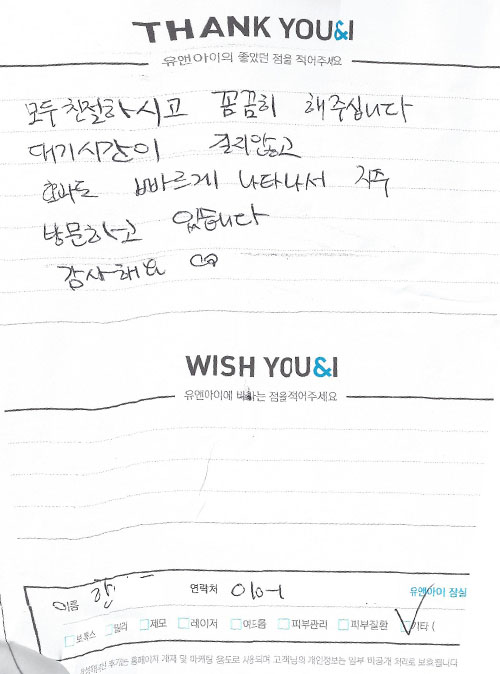 THANK YOU&I
유앤아이의 좋았던 점을 적어주세요
모두 친절하시고 꼼꼼히 해주십니다
대기시간이 길지않고
효과도 빠르게 나타나서 자주
방문하고 있습니다
감사해요
WISH YOU&I
유앤아이에 바라는 점을적어주세요
이름 한 연락처 010-1 유앤아이 잠실
보톡스 필러 제모 레이저 여드름 피부관리 피부질환 기타 (
작성하신 후기는 홈페이지 게재 및 마케팅 용도로 사용되며 고객님의 개인정보는 일부 비공개 처리로 보호됩니다